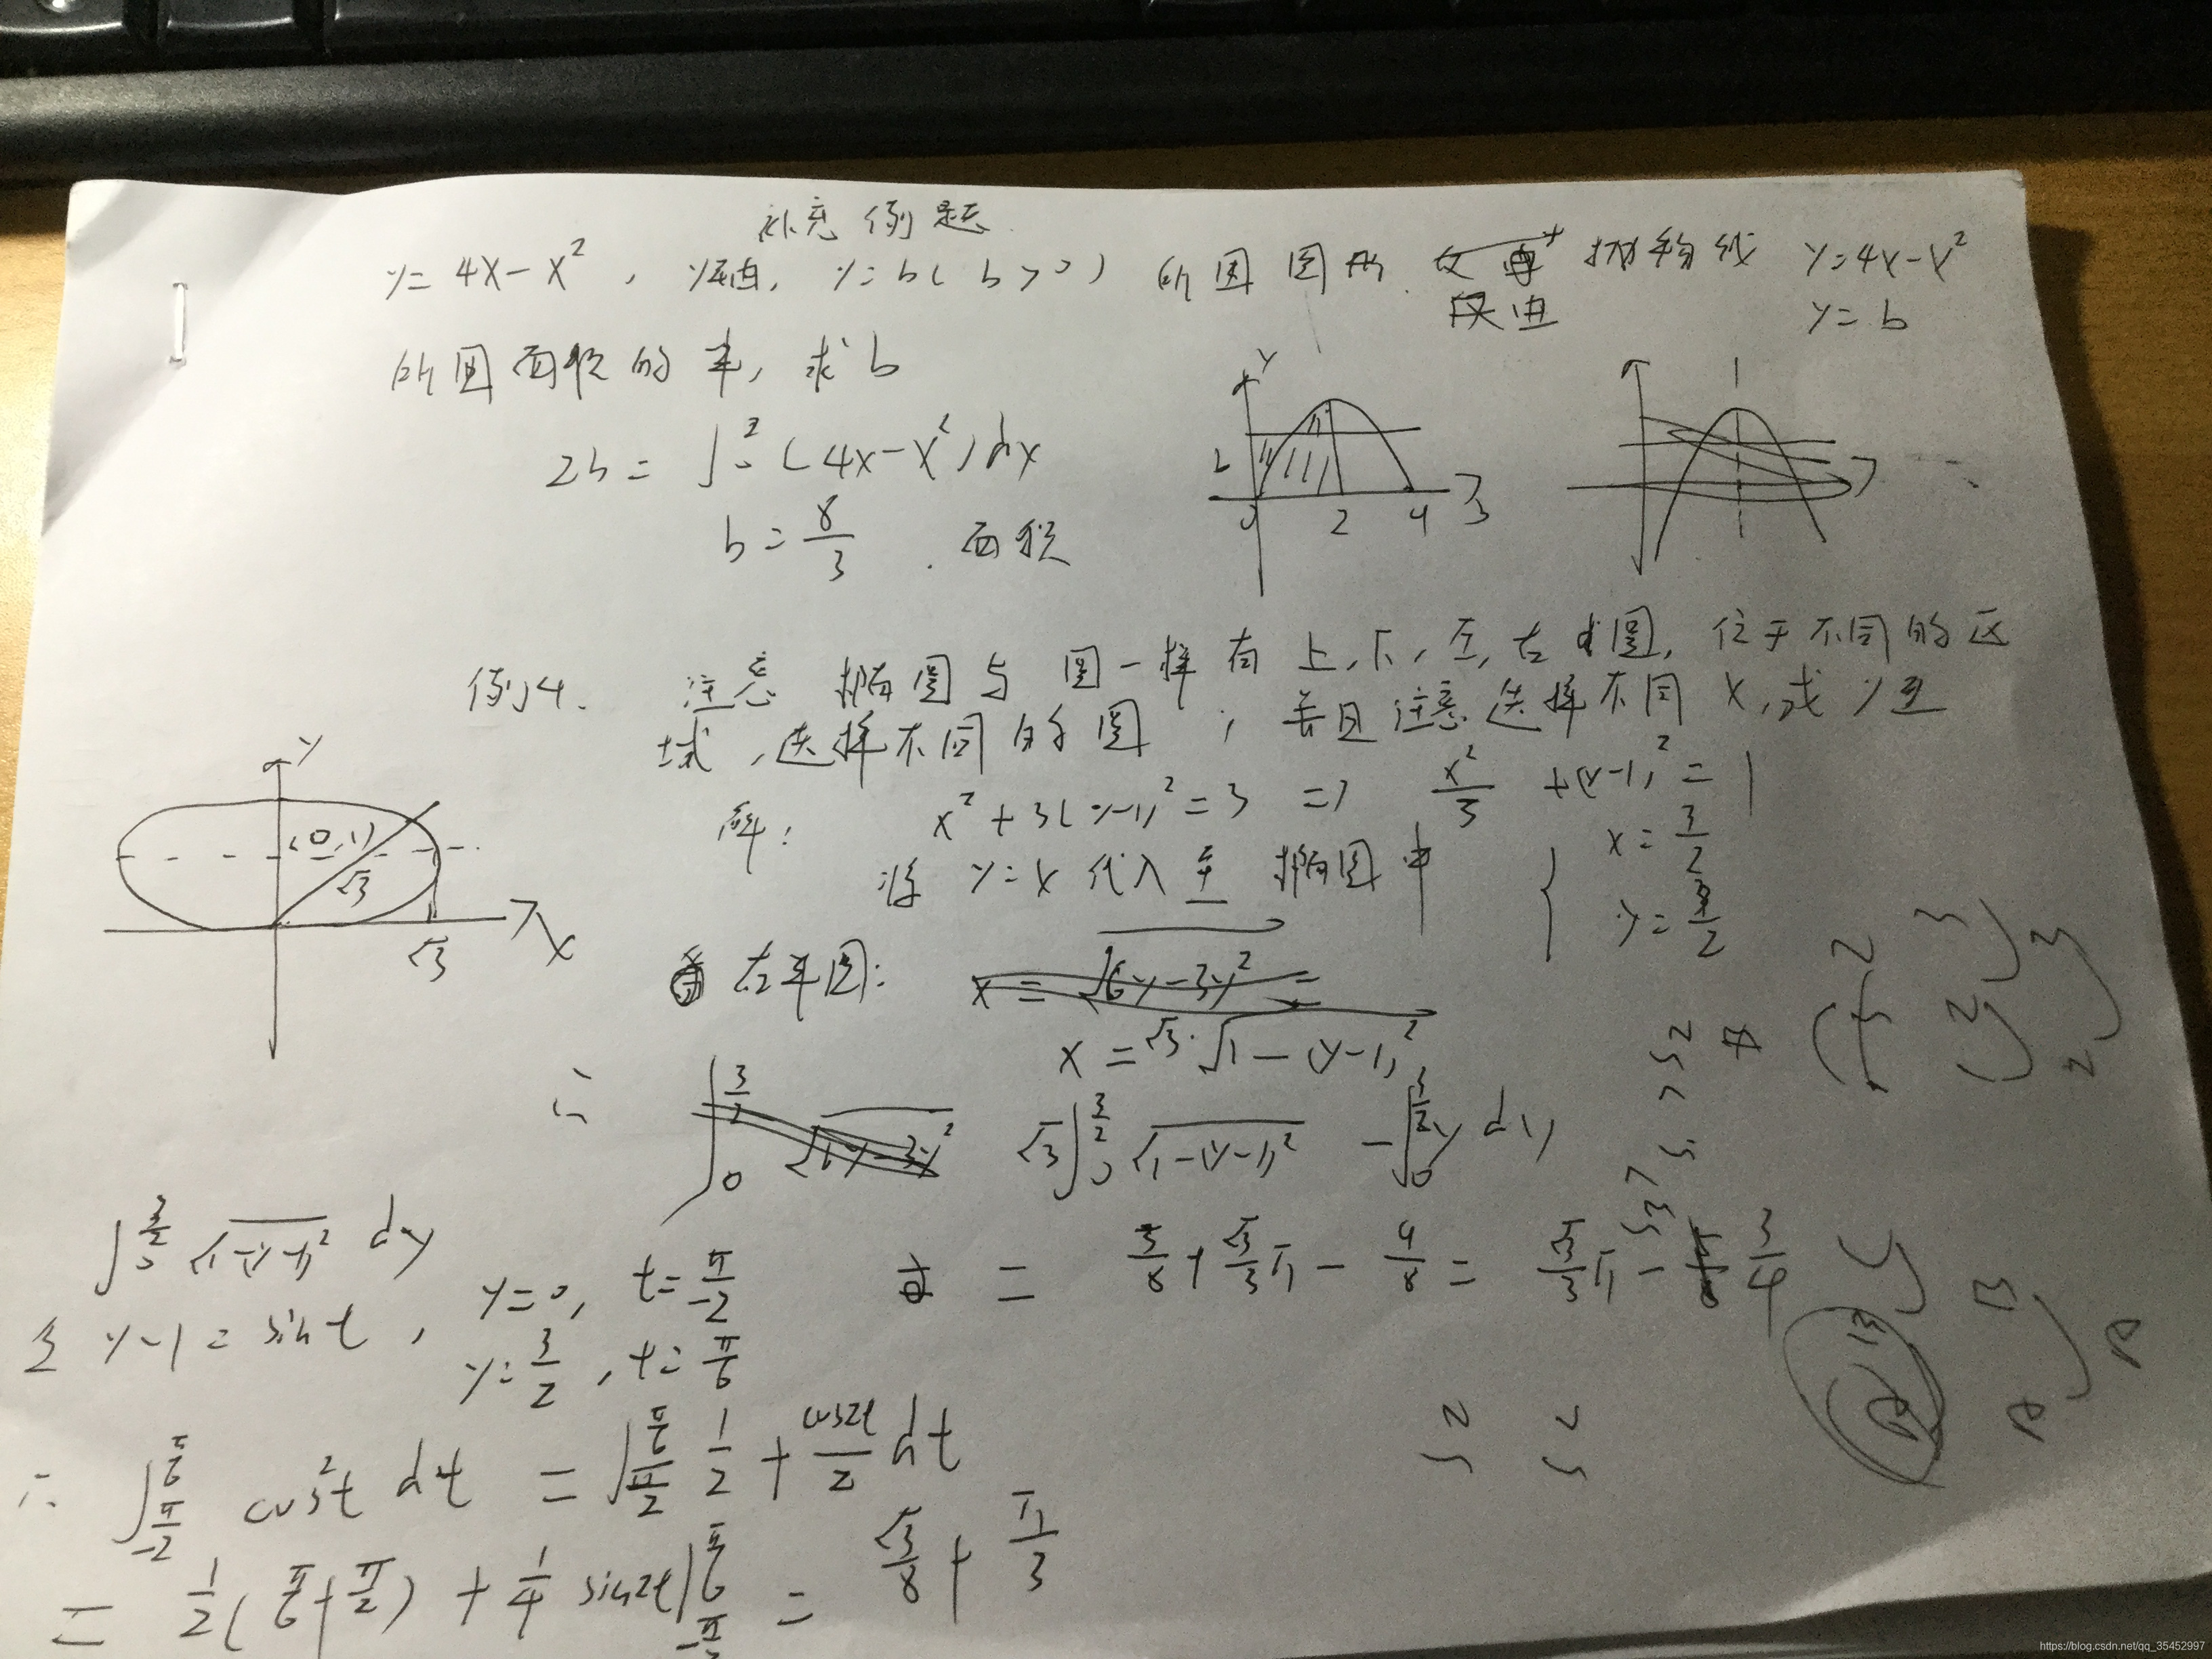 补充例题
y = 4x - x², y轴, y = b (b > 0) 所围图形 抛物线 y = 4x - x²
y = b
所围面积的半, 求 b
2b = ∫₀² (4x - x²) dx
b = 8/3 . 面积
y
b
0 2 4
例4. 注意 椭圆与圆一样有上, 下, 左, 右半圆, 位于不同的区
域, 选择不同的圆, 并且注意选择不同 x, 或 y 型
解: x² + 3(y-1)² = 3 => x²/3 + (y-1)² = 1
将 y = x 代入至 椭圆中 { x = 3/2
y = 3/2
y
(0,1)
√3
√3 x
右半圆: x = √(6y - 3y²) =
x = √3·√(1 - (y-1)²)
∴ ∫₀^(3/2) √(6y - 3y²) √3∫₀^(3/2) √(1-(y-1)²) - ∫₀^(3/2) y dy
= 3/8 + √3/3 π - 9/8 = √3/3 π - 3/4
∫₀^(3/2) √(1-(y-1)²) dy
令 y-1 = sin t, y = 0, t = -π/2
y = 3/2, t = π/6
∴ ∫_(-π/2)^(π/6) cos²t dt = ∫_(-π/2)^(π/6) 1/2 + cos2t/2 dt
= 1/2 (π/6 + π/2) + 1/4 sin2t |_(-π/2)^(π/6) = √3/8 + π/3
https://blog.csdn.net/qq_35452997